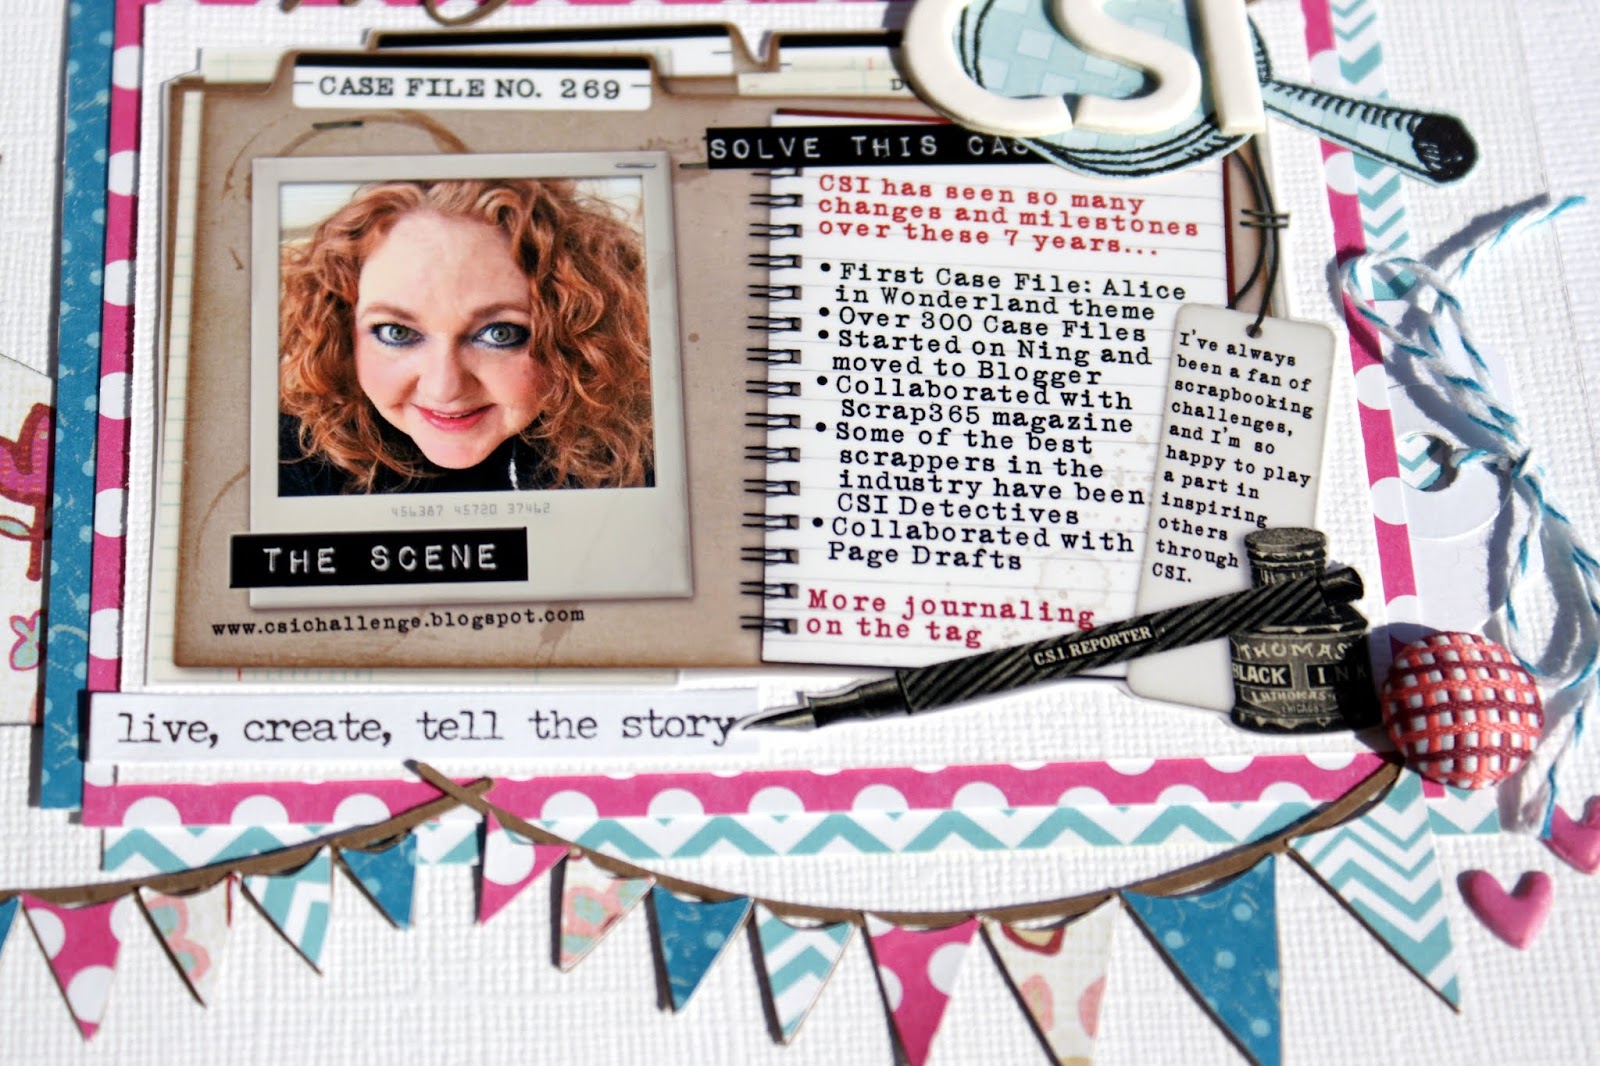 CSI
CASE FILE NO. 269
SOLVE THIS
CSI has seen so many
changes and milestones
over these 7 years...
•First Case File: Alice
in Wonderland theme
•Over 300 Case Files
•Started on Ning and
moved to Blogger
•Collaborated with
Scrap365 magazine
•Some of the best
scrappers in the
industry have been
CSI Detectives
•Collaborated with
Page Drafts
More journaling
on the tag
456387 45720 37462
THE SCENE
www.csichallenge.blogspot.com
I've always
been a fan of
scrapbooking
challenges,
and I'm so
happy to play
a part in
inspiring
others
through
CSI.
C.S.I. REPORTER
THOMAS
BLACK INK
CHICAGO
live, create, tell the story